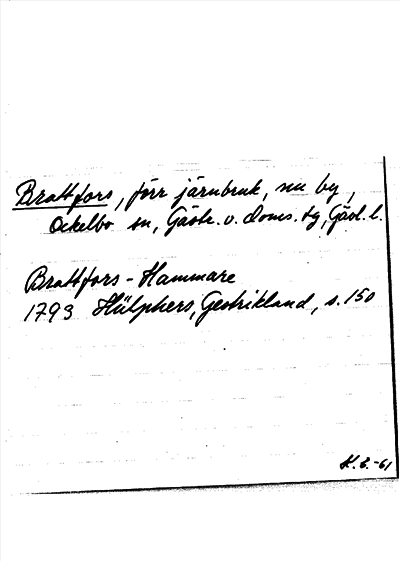 Brattfors, förr järnbruk, nu by,
Ockelbo sn, Gästr. v. doms. tg, Gävl. l.
Brattfors-Hammare
1793 Hülphers, Gestrikland, s. 150
K.E.-61